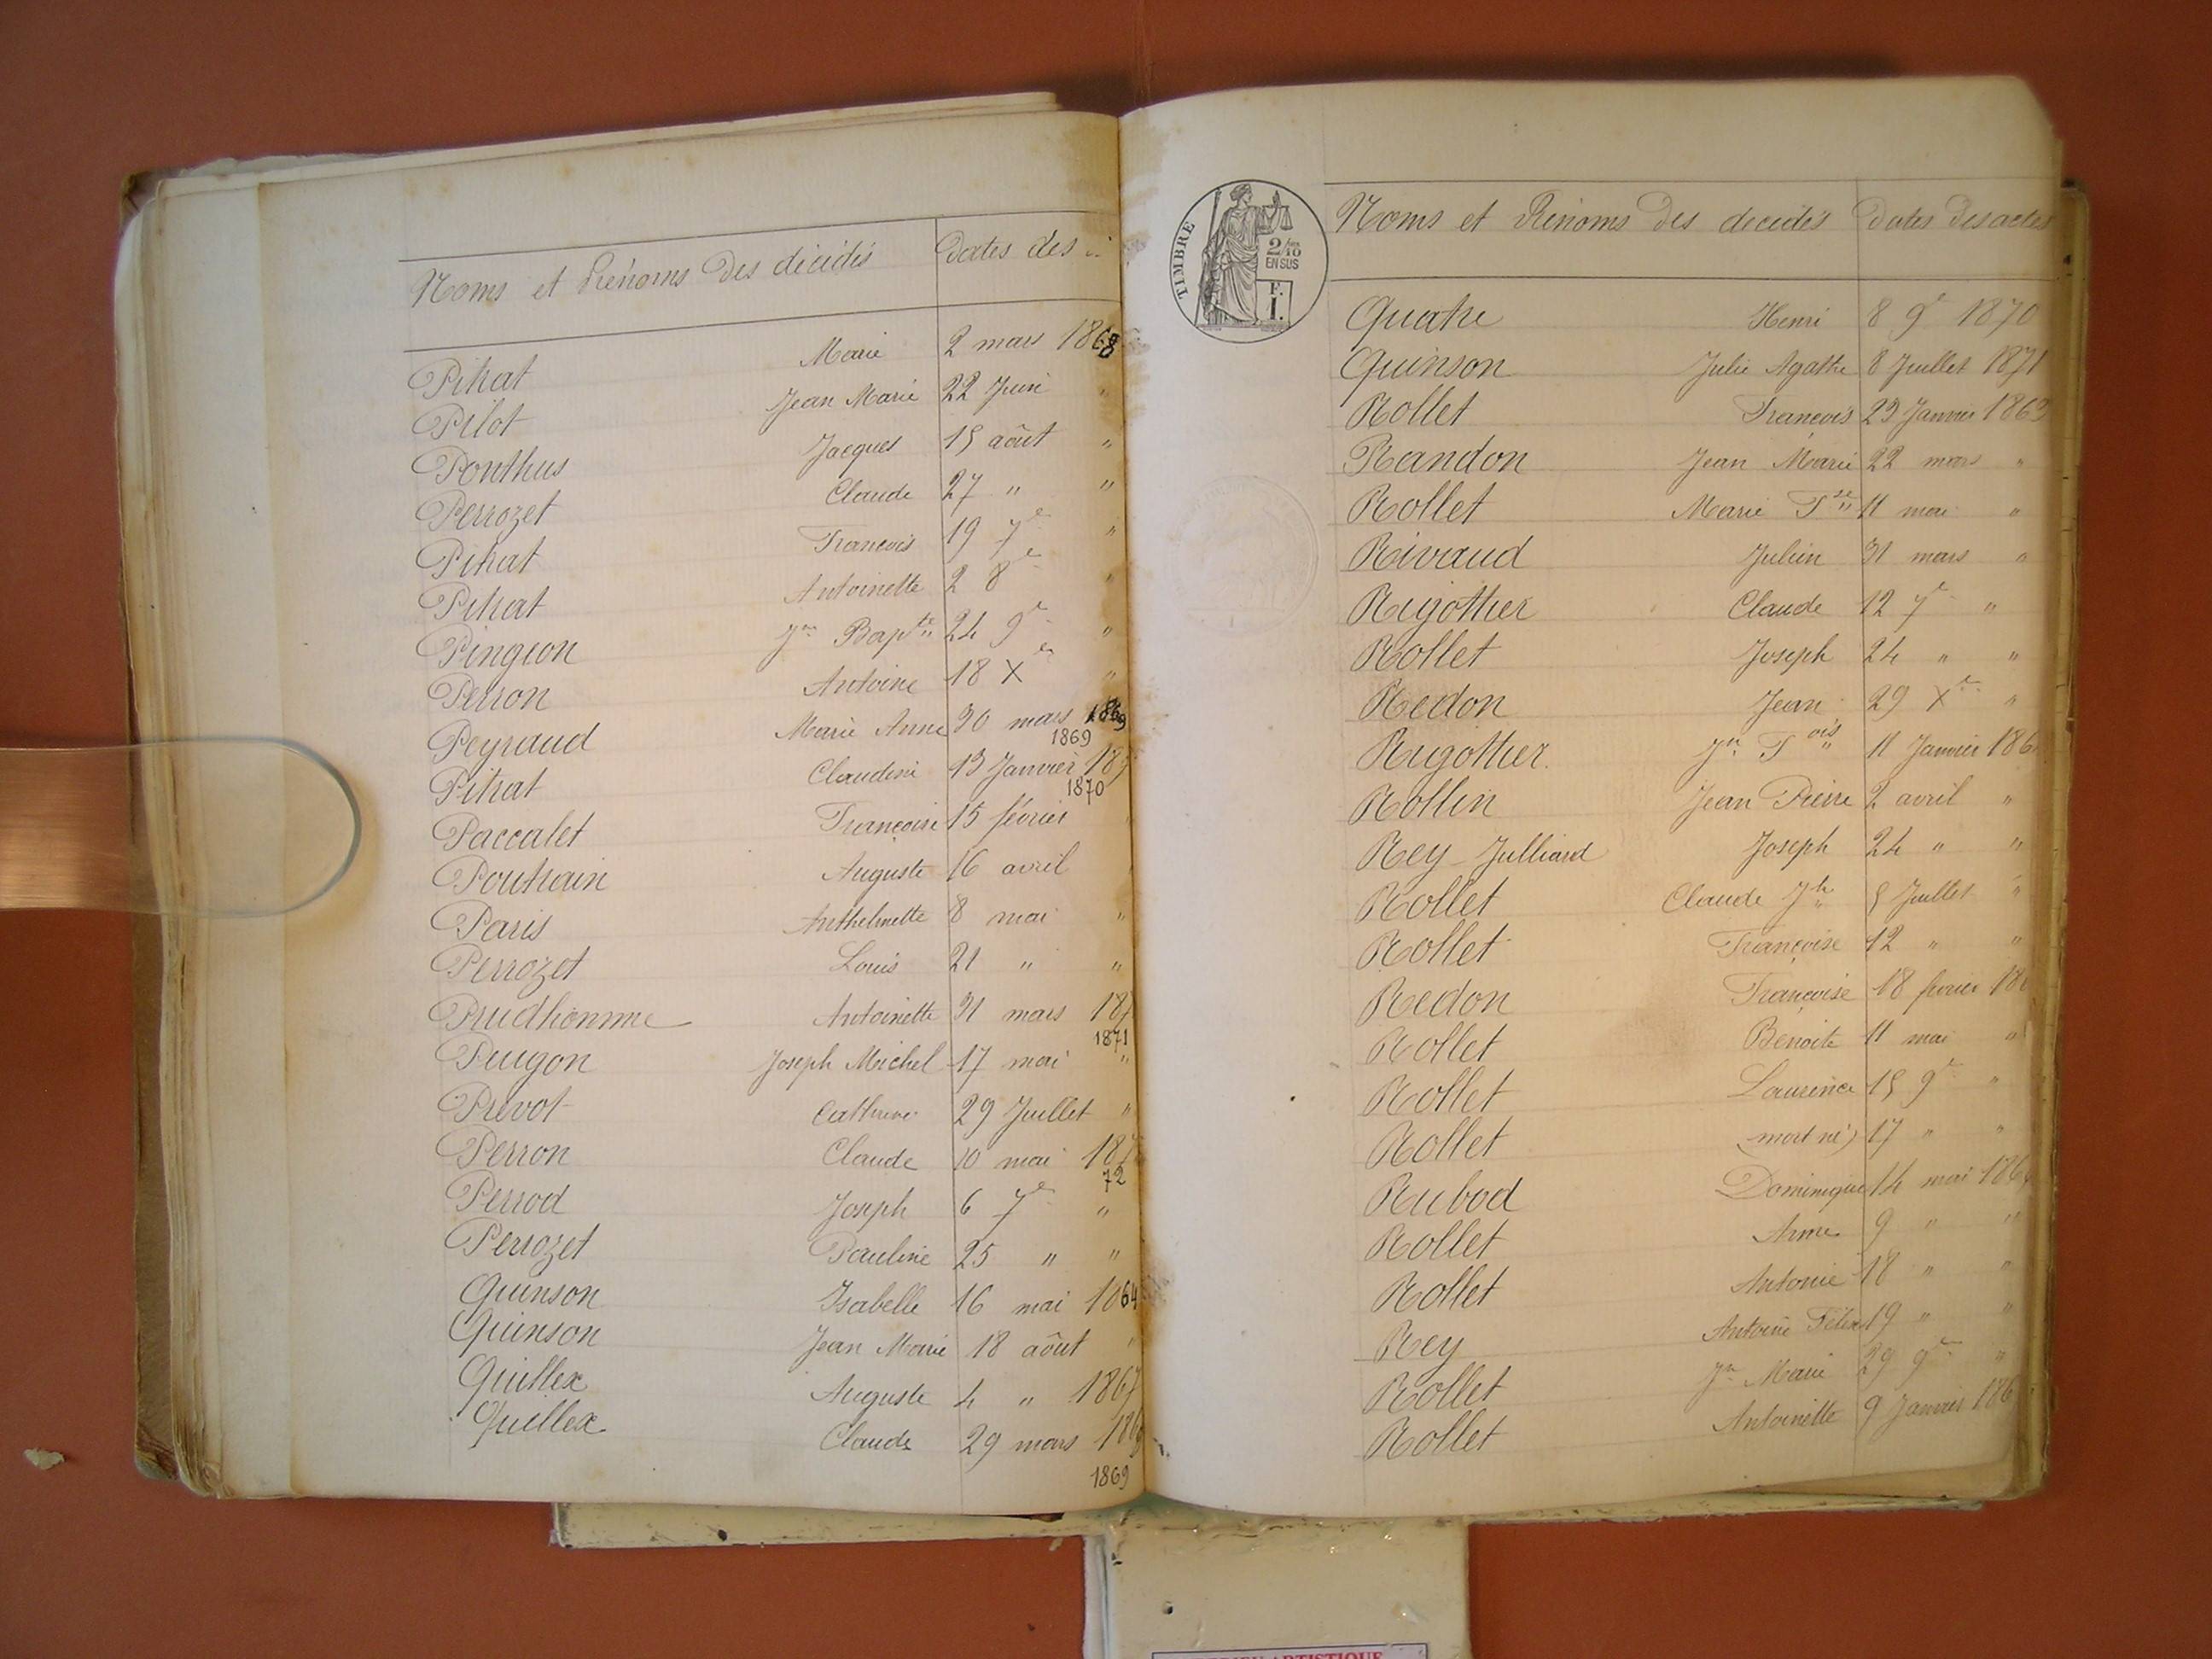 Noms et Prénoms des décédés Dates des
Pitrat Marie 2 mars 1868
Pilot Jean Marie 22 Juin "
Ponthus Jacques 15 août "
Perrozet Claude 27 " "
Pitrat Francois 19 7e "
Pitrat Antoinette 2 8e "
Pingeon Jn Bapte 24 9e "
Perron Antoine 18 Xe "
Peyraud Marie Anne 30 mars 1869
1869
Pitrat Claudine 13 Janvier 187
1870
Paccalet Françoise 15 février "
Poutrain Auguste 16 avril
Paris Anthelmette 8 mai "
Perrozet Louis 21 " "
Prudhomme Antoinette 31 mars 187
1871
Pugon Joseph Michel 17 mai "
Prevot Catherine 29 Juillet "
Perron Claude 10 mai 187
72
Perrod Joseph 6 7e "
Perrozet Pauline 25 " "
Quinson Isabelle 16 mai 1864
Quinson Jean Marie 18 août "
Quillex Auguste 4 " 1867
Quillex Claude 29 mars 1869
1869
TIMBRE
2/10
EN SUS
F.
1.
Noms et Prénoms des décédés Dates des actes
Quatre Henri 8 9e 1870
Quinson Julie Agathe 8 Juillet 1871
Rollet Francois 23 Janvier 1863
Randon Jean Marie 22 mars "
Rollet Marie Fse 11 mai "
Rivaud Julien 31 mars "
Rigottier Claude 12 7e "
Rollet Joseph 24 " "
Redon Jean 29 Xe "
Rigottier Jn Fois 11 Janvier 186
Rollin Jean Pierre 2 avril "
Rey-Julliard Joseph 24 " "
Rollet Claude Jh 5 Juillet "
Rollet Françoise 12 " "
Redon Françoise 18 fevrier 18
Rollet Benoite 11 mai "
Rollet Laurence 15 9e "
Rollet (mort né) 17 " "
Rubod Dominique 14 mai 186
Rollet Anne 9 " "
Rollet Antonie 18 " "
Rey Antoine Félix 19 " "
Rollet Jn Marie 29 9e "
Rollet Antoinette 9 Janvier 186